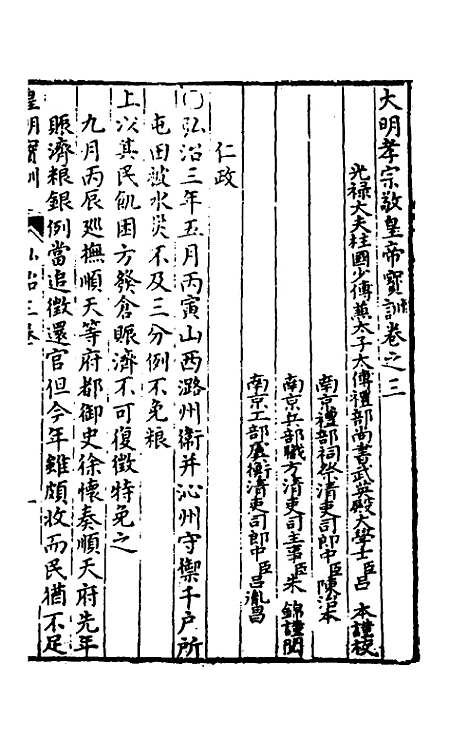 大明孝宗敬皇帝寳訓卷之三
光禄大夫柱國少傅兼太子太傅禮部尚書武英殿大學士臣吕 本謹校
南京禮部祠祭清吏司郎中臣陳治本
南京兵部職方清吏司主事臣朱 錦謹閱
南京工部虞衡清吏司郎中臣吕胤昌
仁政
〇弘治三年五月丙寅山西潞州衛并沁州守禦千户所
屯田被水災不及三分例不免粮
上以其民飢困方發倉賑濟不可復徵特免之
九月丙辰廵撫順天等府都御史徐懷奏順天府先年
賑濟粮銀例當追徵還官但今年雖頗收而民猶不足
皇明寳訓 弘治三卷 一